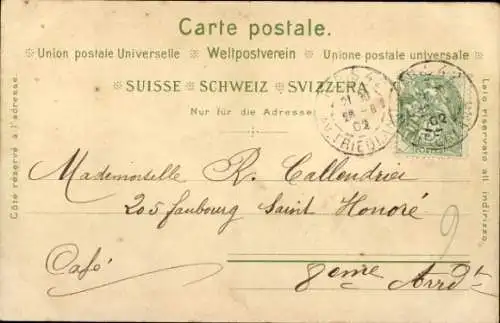 Carte postale.
Union postale Universelle ※ Weltpostverein ※ Unione postale universale
SUISSE ※ SCHWEIZ ※ SVIZZERA
Nur für die Adresse
Côté réservé à l'adresse.
Lato riservato all indirizzo.
02
02
Mademoiselle R. Callendrier
205 faubourg Saint Honoré
Café
8eme Arrdt
9